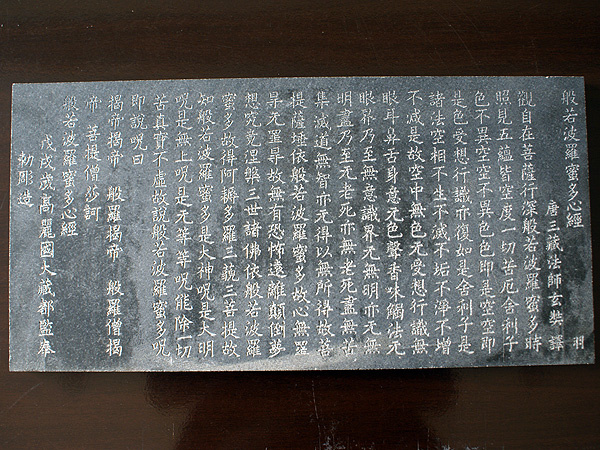 般若波羅蜜多心經
唐三藏法師玄奘譯 羽
觀自在菩薩行深般若波羅蜜多時
照見五蘊皆空度一切苦厄舍利子
色不異空空不異色色即是空空即
是色受想行識亦復如是舍利子是
諸法空相不生不滅不垢不淨不增
不減是故空中無色无受想行識無
眼耳鼻舌身意无色聲香味觸法无
眼界乃至無意識界无無明亦无無
明盡乃至无老死亦無老死盡無苦
集滅道無智亦无得以無所得故菩
提薩埵依般若波羅蜜多故心無罣
㝵无罣㝵故無有恐怖遠離顛倒夢
想究竟涅槃三世諸佛依般若波羅
蜜多故得阿耨多羅三藐三菩提故
知般若波羅蜜多是大神呪是大明
呪是無上呪是无等等呪能除一切
苦真實不虛故說般若波羅蜜多呪
即說呪曰
揭帝揭帝 般羅揭帝 般羅僧揭
帝 菩提僧莎訶
般若波羅蜜多心經
戊戌歲高麗國大藏都監奉
勅彫造